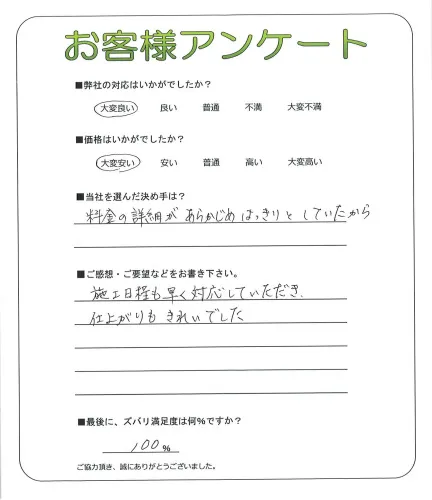 お客様アンケート
■弊社の対応はいかがでしたか？
大変良い 良い 普通 不満 大変不満
■価格はいかがでしたか？
大変安い 安い 普通 高い 大変高い
■当社を選んだ決め手は？
料金の詳細があらかじめはっきりとしていたから
■ご感想・ご要望などをお書き下さい。
施工日程も早く対応していただき、
仕上がりもきれいでした
■最後に、ズバリ満足度は何％ですか？
100％
ご協力頂き、誠にありがとうございました。